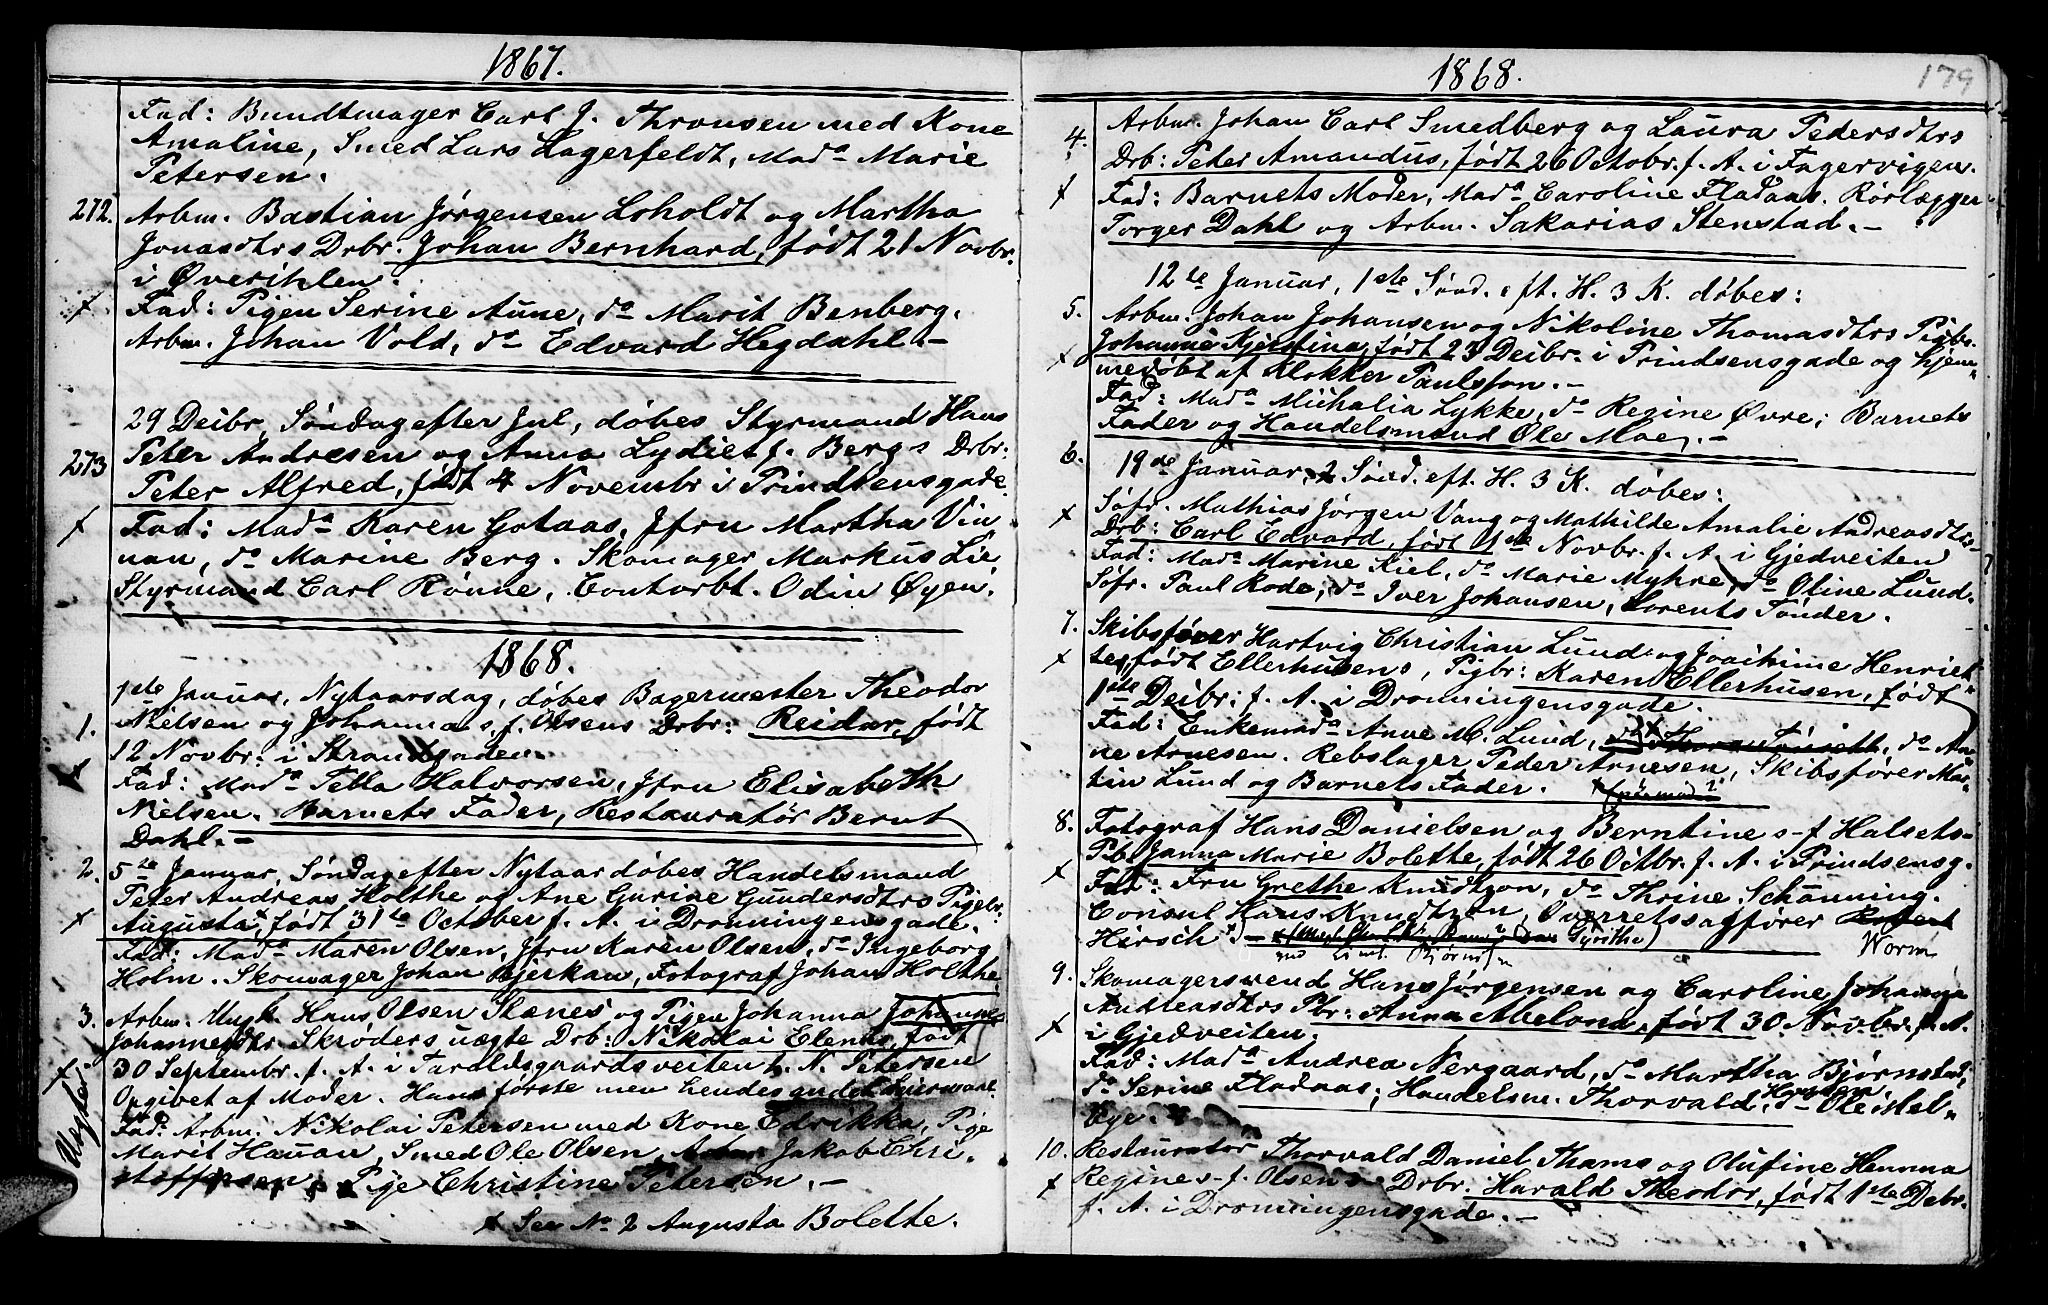 1867.
Fad: Bundtmager Carl J. Thronsen med Kone
Amaline, Smed Lars Lagerfeldt, Mad<sup>a</sup> Marie
Petersen.
272. Arbm. Bastian Jørgensen Loholdt og Martha
Jonasdtrs Drbr. Johan Bernhard, født 21 Novbr.
i Øverihlen.
x Fad: Pigen Serine Aune, do Marit Benberg.
Arbm. Johan Vold, do Edvard Hegdahl. –
29 Deibr, Søndag efter Jul, døbes Styrmand Hans
273 Peter Andresen og Anna Lydie s. f. Bergs Drbr:
Peter Alfred, født 4 Novembr i Prindsensgade.
x Fad: Mad<sup>a</sup> Karen Gotaas, Jfru Martha Vin-
nan, do Marine Berg. Skomager Markus Lie,
Styrmand Carl Rønne, Contorbt. Odin Øyen.
1868.
1ste Januar, Nytaarsdag, døbes Bagermester Theodor
1. Nielsen og Johanna s. f. Olsens Drbr: Reidar, født
12 Novbr: i Strandgaden.
x Fad: Mad<sup>a</sup> Tella Halvorsen, Jfru Elisabeth
Nielsen. Barnets Fader, Restauratør Bernt
Dahl. –
2. 5te Januar, Søndag efter Nytaar døbes Handelsmand
Peter Andreas Holthe og Ane Gurine Gundersdtrs Pigebr:
x Augusta x, født 31te October f. A. i Dronningensgade.
Fad: Mad<sup>a</sup> Maren Olsen, Jfru Karen Olsen, do Ingeborg
Holm. Skomager Johan Bjerkan, Fotograf Johan Holthe.
3. Arbm. Ungk. Hans Olsen Stenes og Pigen Johanna
Johannesdtr Skrøders uægte Drb: Nikolai Elenus, født
x 30 Septembr. f. A. i Taraldsgaardsveiten h. N. Petersen
Uægte. Opgivet af Moder. Hans første men hendes andet Leiermaal.
Fad: Arbm. Nikolai Petersen med Kone Edrikka, Pige
Marit Hauan, Smed Ole Olsen, Arbm. Jakob Chri-
stoffersen, Pige Christine Petersen. –
x See No 2 Augusta Bolette.
1868.
179
Arbm. Johan Carl Smedberg og Laura Pedersdtrs
4. Drb: Peter Amandus, født 26 Octobr. f. A. i Fagervigen.
x Fad: Barnets Moder, Mad<sup>a</sup> Caroline Fladaas. Rørlægger
Torger Dahl og Arbm. Sakarias Stenstad. –
12te Januar, 1ste Sønd. eft. H. 3 K. døbes:
5. Arbm. Johan Johansen og Nikoline Thomasdtrs Pigbr.
x Johanne Kjerstina, født 23 Deibr. i Prindsensgade og hjem-
medøbt af Klokker Paulsson. –
Fad: Mad<sup>a</sup> Michalia Lykke, do Regine Øvre; Barnets
Fader og Handelsmand Ole Moe. –
6. 19de Januar, 2 Sønd. eft. H. 3 K. døbes:
x Søfr. Mathias Jørgen Vang og Mathilde Amalie Andreasdtrs
Drb: Carl Edvard, født 1ste Novbr. f. A. i Gjedveiten
Fad: Mad<sup>a</sup> Marine Kiel, do Marie Myhre, do Oline Lund.
Søfr. Paul Rode, do Iver Johansen, Lorents Tønder.
7. Skibsfører Hartvig Christian Lund og Joachime Henriet-
x te, født Ellerhusens, Pigbr: Karen Ellerhusen, født
1ste Deibr: f. A. i Dronningensgade.
Fad: Enkemad<sup>a</sup> Anne M. Lund, do An-
ne Arnesen. Rebslager Peder Arnesen, Skibsfører Mar-
tin Lund og Barnets Fader.
8. Fotograf Hans Danielsen og Berntine s. f. Halsets
x Pb. Janna Marie Bolette, født 26 Octbr. f. A. i Prindsensg.
Fad: Fru Grethe Knudtzon, do Thrine Schønning.
Consul Hans Knudtzon, Overretssagfører
Hirsch Worm
9. Skomagersvend Hans Jørgensen og Caroline Johanna
Andreasdtrs Pbr: Anna Abelona, født 30 Novbr. f. A.
x i Gjedveiten.
Fad: Mad<sup>a</sup> Andrea Nergaard, do Martha Bjørnstad,
do Serine Fladaas; Handelsm. Thorvald Hansen, do Ole Mel-
bye.
10. Restauratør Thorvald Daniel Thams og Olufine Hemma
x Regine s. f. Olsens Drbr. Harald Theodor, født 1ste Debr.
f. A. i Dronningensgade. –